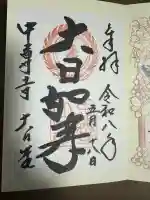 奉拝
令和八年
五月十日
大日如来
中尊寺 大日堂